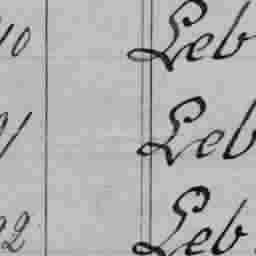 10 Leb
21 Leb
22 Leb